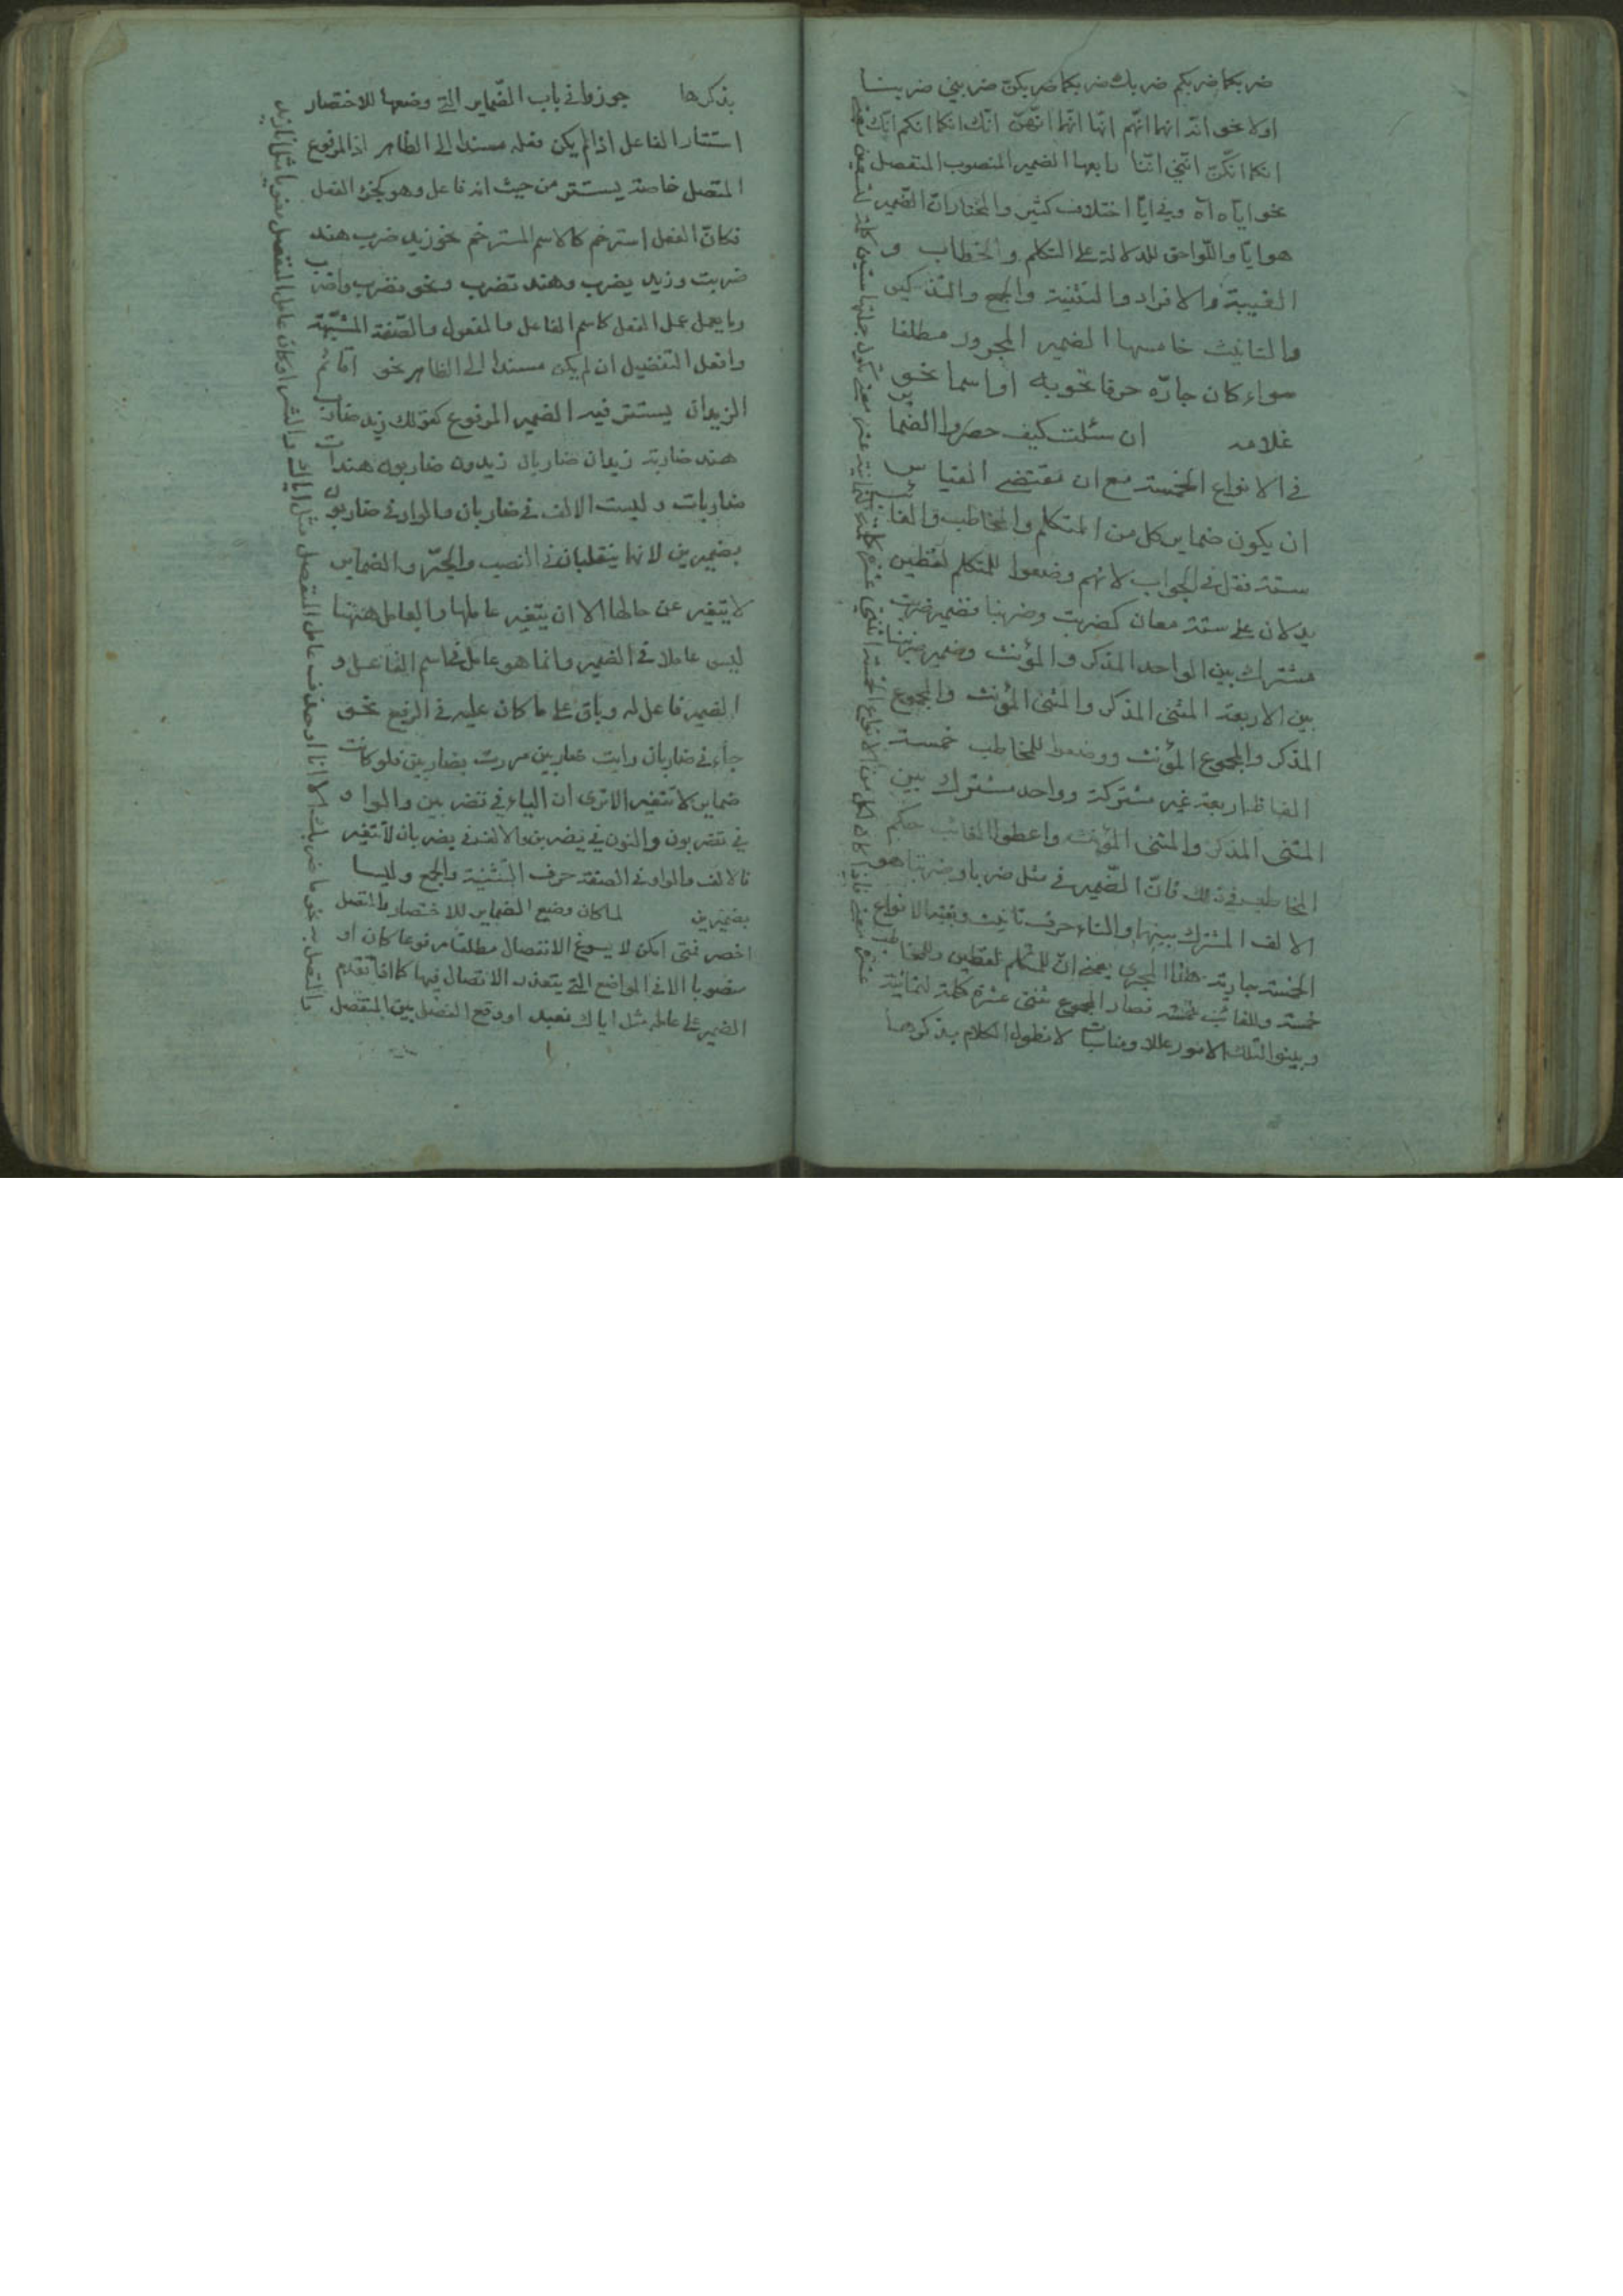 ضربكما ضربكم ضربك ضربكما ضربكن ضربني ضربنا
اولا نحو انه انهما انهم انها انهما انهن انك انكما انكم انك
انكما انكن انني اننا رابعها الضمير المنصوب المنفصل
نحو اياه اه وفي ايا اختلاف كثير والمختار ان الضمير
هو ايا واللواحق للدلالة على التكلم والخطاب و
الغيبة والافراد والتثنية والجمع والتذكير
والتانيث خامسها الضمير المجرور مطلقا
سواء كان جاره حرفا نحو به او اسما نحو
غلامه ان سئلت كيف حصروا الضماير
في الانواع الخمسة مع ان مقتضى القياس
ان يكون ضماير كل من المتكلم والمخاطب والغائب
ستة فقل في الجواب لانهم وضعوا للمتكلم لفظين
يدلان على ستة معان كضربت وضربنا فضمير ضربت
مشترك بين الواحد المذكر والمؤنث وضمير ضربنا
بين الاربعة المثنى المذكر والمثنى المؤنث والمجموع
المذكر والمجموع المؤنث ووضعوا للمخاطب خمسة
الفاظ اربعة غير مشتركة وواحد مشترك بين
المثنى المذكر والمثنى المؤنث واعطوا الغائب حكم
المخاطب في ذلك فان الضمير في مثل ضربا وضربتا هو
الالف المشترك بينهما والتاء حرف تانيث وبقية الانواع
الخمسة جارية هذا المجرى يعني ان للمتكلم لفظين وللمخاطب
خمسة وللغائب خمسة فصار المجموع اثنتي عشرة كلمة لثمانية
وبينوا لتلك الامور عللا ومناسبات لا نطول الكلام بذكرها
عشر معنى فاذا كان لكل من الانواع الخمسة اثنتي عشرة كلمة لثمانية عشر معنى يكون جملتها ستين كلمة لتسعين معنى
بذكرها جوزوا في باب الضماير التي وضعها للاختصار
استتار الفاعل اذا لم يكن فعله مسندا الى الظاهر اذ المرفوع
المتصل خاصة يستتر من حيث انه فاعل وهو كجزء الفعل
فكان الفعل استرخم كالاسم المسترخم نحو زيد ضرب هند
ضربت وزيد يضرب وهند تضرب ونحو نضرب واضرب
وما يعمل عمل الفعل كاسم الفاعل والمفعول والصفة المشبهة
وافعل التفضيل ان لم يكن مسندا الى الظاهر نحو اقائم
الزيدان يستتر فيه الضمير المرفوع كقولك زيد ضارب
هند ضاربة زيدان ضاربان زيدون ضاربون هندات
ضاربات وليست الالف في ضاربان والواو في ضاربون
بضميرين لانهما ينقلبان في النصب والجر والضماير
لا يتغير عن حالها الا ان يتغير عاملها والعامل هيهنا
ليس عاملا في الضمير وانما هو عامل في اسم الفاعل و
الضمير فاعل له وباق على ما كان عليه في الرفع نحو
جاءني ضاربان رايت ضاربين مررت بضاربين فلو كانت
ضماير لا تتغير الا ترى ان الياء في تضربين والواو
في تضربون والنون في يضربن والالف في يضربان لا تتغير
فالالف والواو في الصفة حرف التثنية والجمع وليسا
بضميرين لما كان وضع الضماير للاختصار والمتصل
اخصر فمتى امكن لا يسوغ الانفصال مطلقا مرفوعا كان او
منصوبا الا في المواضع التي يتعذر الاتصال فيها كما اذا تقدم
الضمير على عامله مثل اياك نعبد او وقع الفصل بين المنفصل
والمتصل به نحو ما ضربك الا انا او حذف عامل المنفصل مثل اياك والشر او كان عامل المنفصل معنويا مثل انا زيد